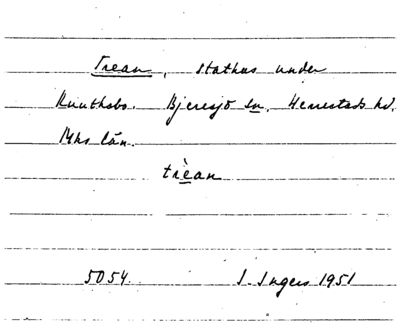 Trean, stathus under
Ruuthsbo. Bjeresjö sn. Herrestads hd.
Mhs län.
trèan
5054. I. Ingers 1951